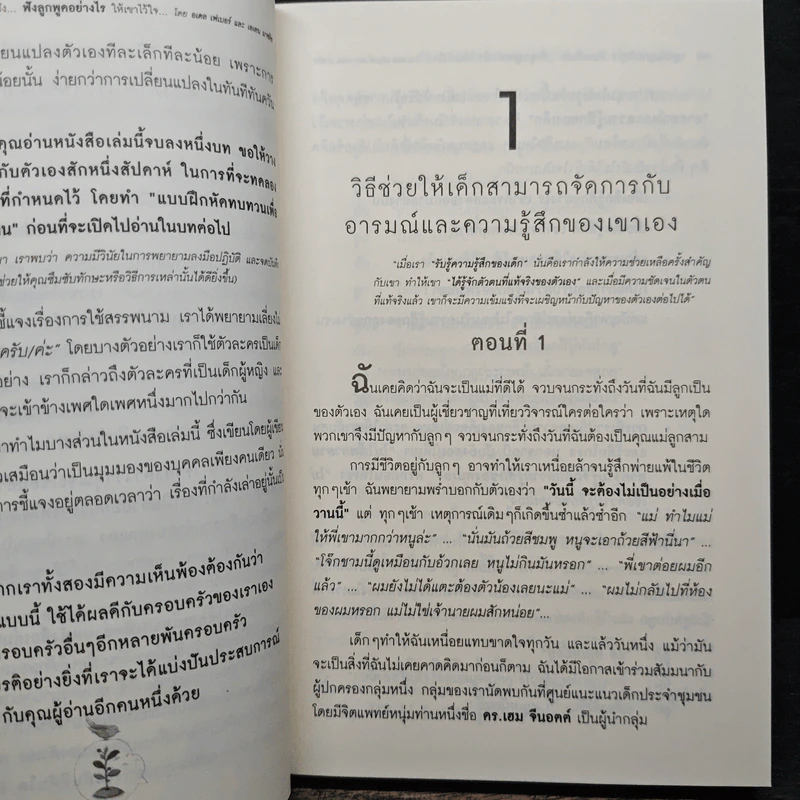 ฟังลูกพูดอย่างไร ให้เขาไว้ใจ... โดย อเดล เฟเบอร์ และ เอเลน
ยนแปลงตัวเองทีละเล็กทีละน้อย เพราะการ
น้อยนั้น ง่ายกว่าการเปลี่ยนแปลงในทันทีทันใด
คุณอ่านหนังสือเล่มนี้จบลงหนึ่งบท ขอให้วาง
กับตัวเองสักหนึ่งสัปดาห์ ในการที่จะทดลอง
ที่กำหนดไว้ โดยทำ "แบบฝึกหัดทบทวนเพื่อ
น" ก่อนที่จะเปิดไปอ่านในบทต่อไป
เราพบว่า ความมีวินัยในการพยายามลงมือปฏิบัติ และจดบันทึก
ช่วยให้คุณซึมซับทักษะหรือวิธีการเหล่านั้นได้ดียิ่งขึ้น)
ชี้แจงเรื่องการใช้สรรพนาม เราได้พยายามเลี่ยงไม่
ครับ/ค่ะ" โดยบางตัวอย่างเราก็ใช้ตัวละครเป็นเด็ก
อย่าง เราก็กล่าวถึงตัวละครที่เป็นเด็กผู้หญิง และ
จะเข้าข้างเพศใดเพศหนึ่งมากไปกว่ากัน
ทำไมบางส่วนในหนังสือเล่มนี้ ซึ่งเขียนโดยผู้เขียน
เสมือนว่าเป็นมุมมองของบุคคลเพียงคนเดียว
การชี้แจงอยู่ตลอดเวลาว่า เรื่องที่กำลังเล่าอยู่นั้นเป็น
ากเราทั้งสองมีความเห็นพ้องต้องกันว่า
แบบนี้ ใช้ได้ผลดีกับครอบครัวของเราเอง
ครอบครัวอื่นๆอีกหลายพันครอบครัว
รติอย่างยิ่งที่เราจะได้แบ่งปันประสบการณ์
กับคุณผู้อ่านอีกคนหนึ่งด้วย
1
วิธีช่วยให้เด็กสามารถจัดการกับ
อารมณ์และความรู้สึกของเขาเอง
"เมื่อเรา "รับรู้ความรู้สึกของเด็ก" นั่นคือเรากำลังให้ความช่วยเหลือครั้งสำคัญ
กับเขา ทำให้เขา "ได้รู้จักตัวตนที่แท้จริงของตัวเอง" และเมื่อมีความชัดเจนในตัวตน
ที่แท้จริงแล้ว เขาก็จะมีความเข้มแข็งที่จะเผชิญหน้ากับปัญหาของตัวเองต่อไปได้"
ตอนที่ 1
ฉันเคยคิดว่าฉันจะเป็นแม่ที่ดีได้ จวบจนกระทั่งถึงวันที่ฉันมีลูกเป็น
ของตัวเอง ฉันเคยเป็นผู้เชี่ยวชาญที่เที่ยววิจารณ์ใครต่อใครว่า เพราะเหตุใด
พวกเขาจึงมีปัญหากับลูกๆ จวบจนกระทั่งถึงวันที่ฉันต้องเป็นคุณแม่ลูกสาม
การมีชีวิตอยู่กับลูกๆ อาจทำให้เราเหนื่อยล้าจนรู้สึกพ่ายแพ้ในชีวิต
ทุกๆเช้า ฉันพยายามพร่ำบอกกับตัวเองว่า "วันนี้ จะต้องไม่เป็นอย่างเมื่อ
วานนี้" แต่ ทุกๆเช้า เหตุการณ์เดิมๆก็เกิดขึ้นซ้ำแล้วซ้ำอีก "แม่ ทำไมแม่
ให้พี่เขามากกว่าหนูล่ะ" ... "นั่นมันถ้วยสีชมพู หนูจะเอาถ้วยสีฟ้านี่นา" ...
"โจ๊กชามนี้ดูเหมือนกับอ้วกเลย หนูไม่กินมันหรอก" ... "พี่เขาต่อยผมอีก
แล้ว" ... "ผมยังไม่ได้แตะต้องตัวน้องเลยนะแม่" ... "ผมไม่กลับไปที่ห้อง
ของผมหรอก แม่ไม่ใช่เจ้านายผมสักหน่อย"...
เด็กๆทำให้ฉันเหนื่อยแทบขาดใจทุกวัน และแล้ววันหนึ่ง แม้ว่ามัน
จะเป็นสิ่งที่ฉันไม่เคยคาดคิดมาก่อนก็ตาม ฉันได้มีโอกาสเข้าร่วมสัมมนากับ
ผู้ปกครองกลุ่มหนึ่ง กลุ่มของเรานัดพบกันที่ศูนย์แนะแนวเด็กประจำชุมชน
โดยมีจิตแพทย์หนุ่มท่านหนึ่งชื่อ ดร.เฮม จีนอตต์ เป็นผู้นำกลุ่ม